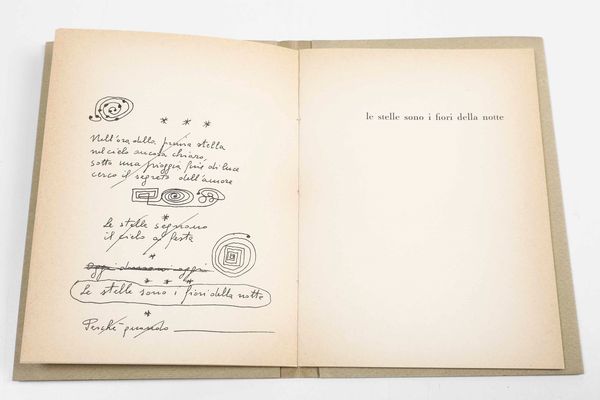 * * *
Nell'ora della prima stella
nel cielo ancora chiaro,
sotto una pioggia fine di luce
cerco il segreto dell'amore
*
Le stelle segnano
il cielo a festa
*
oggi domani oggi
* * *
Le stelle sono i fiori della notte
*
Perché quando
le stelle sono i fiori della notte